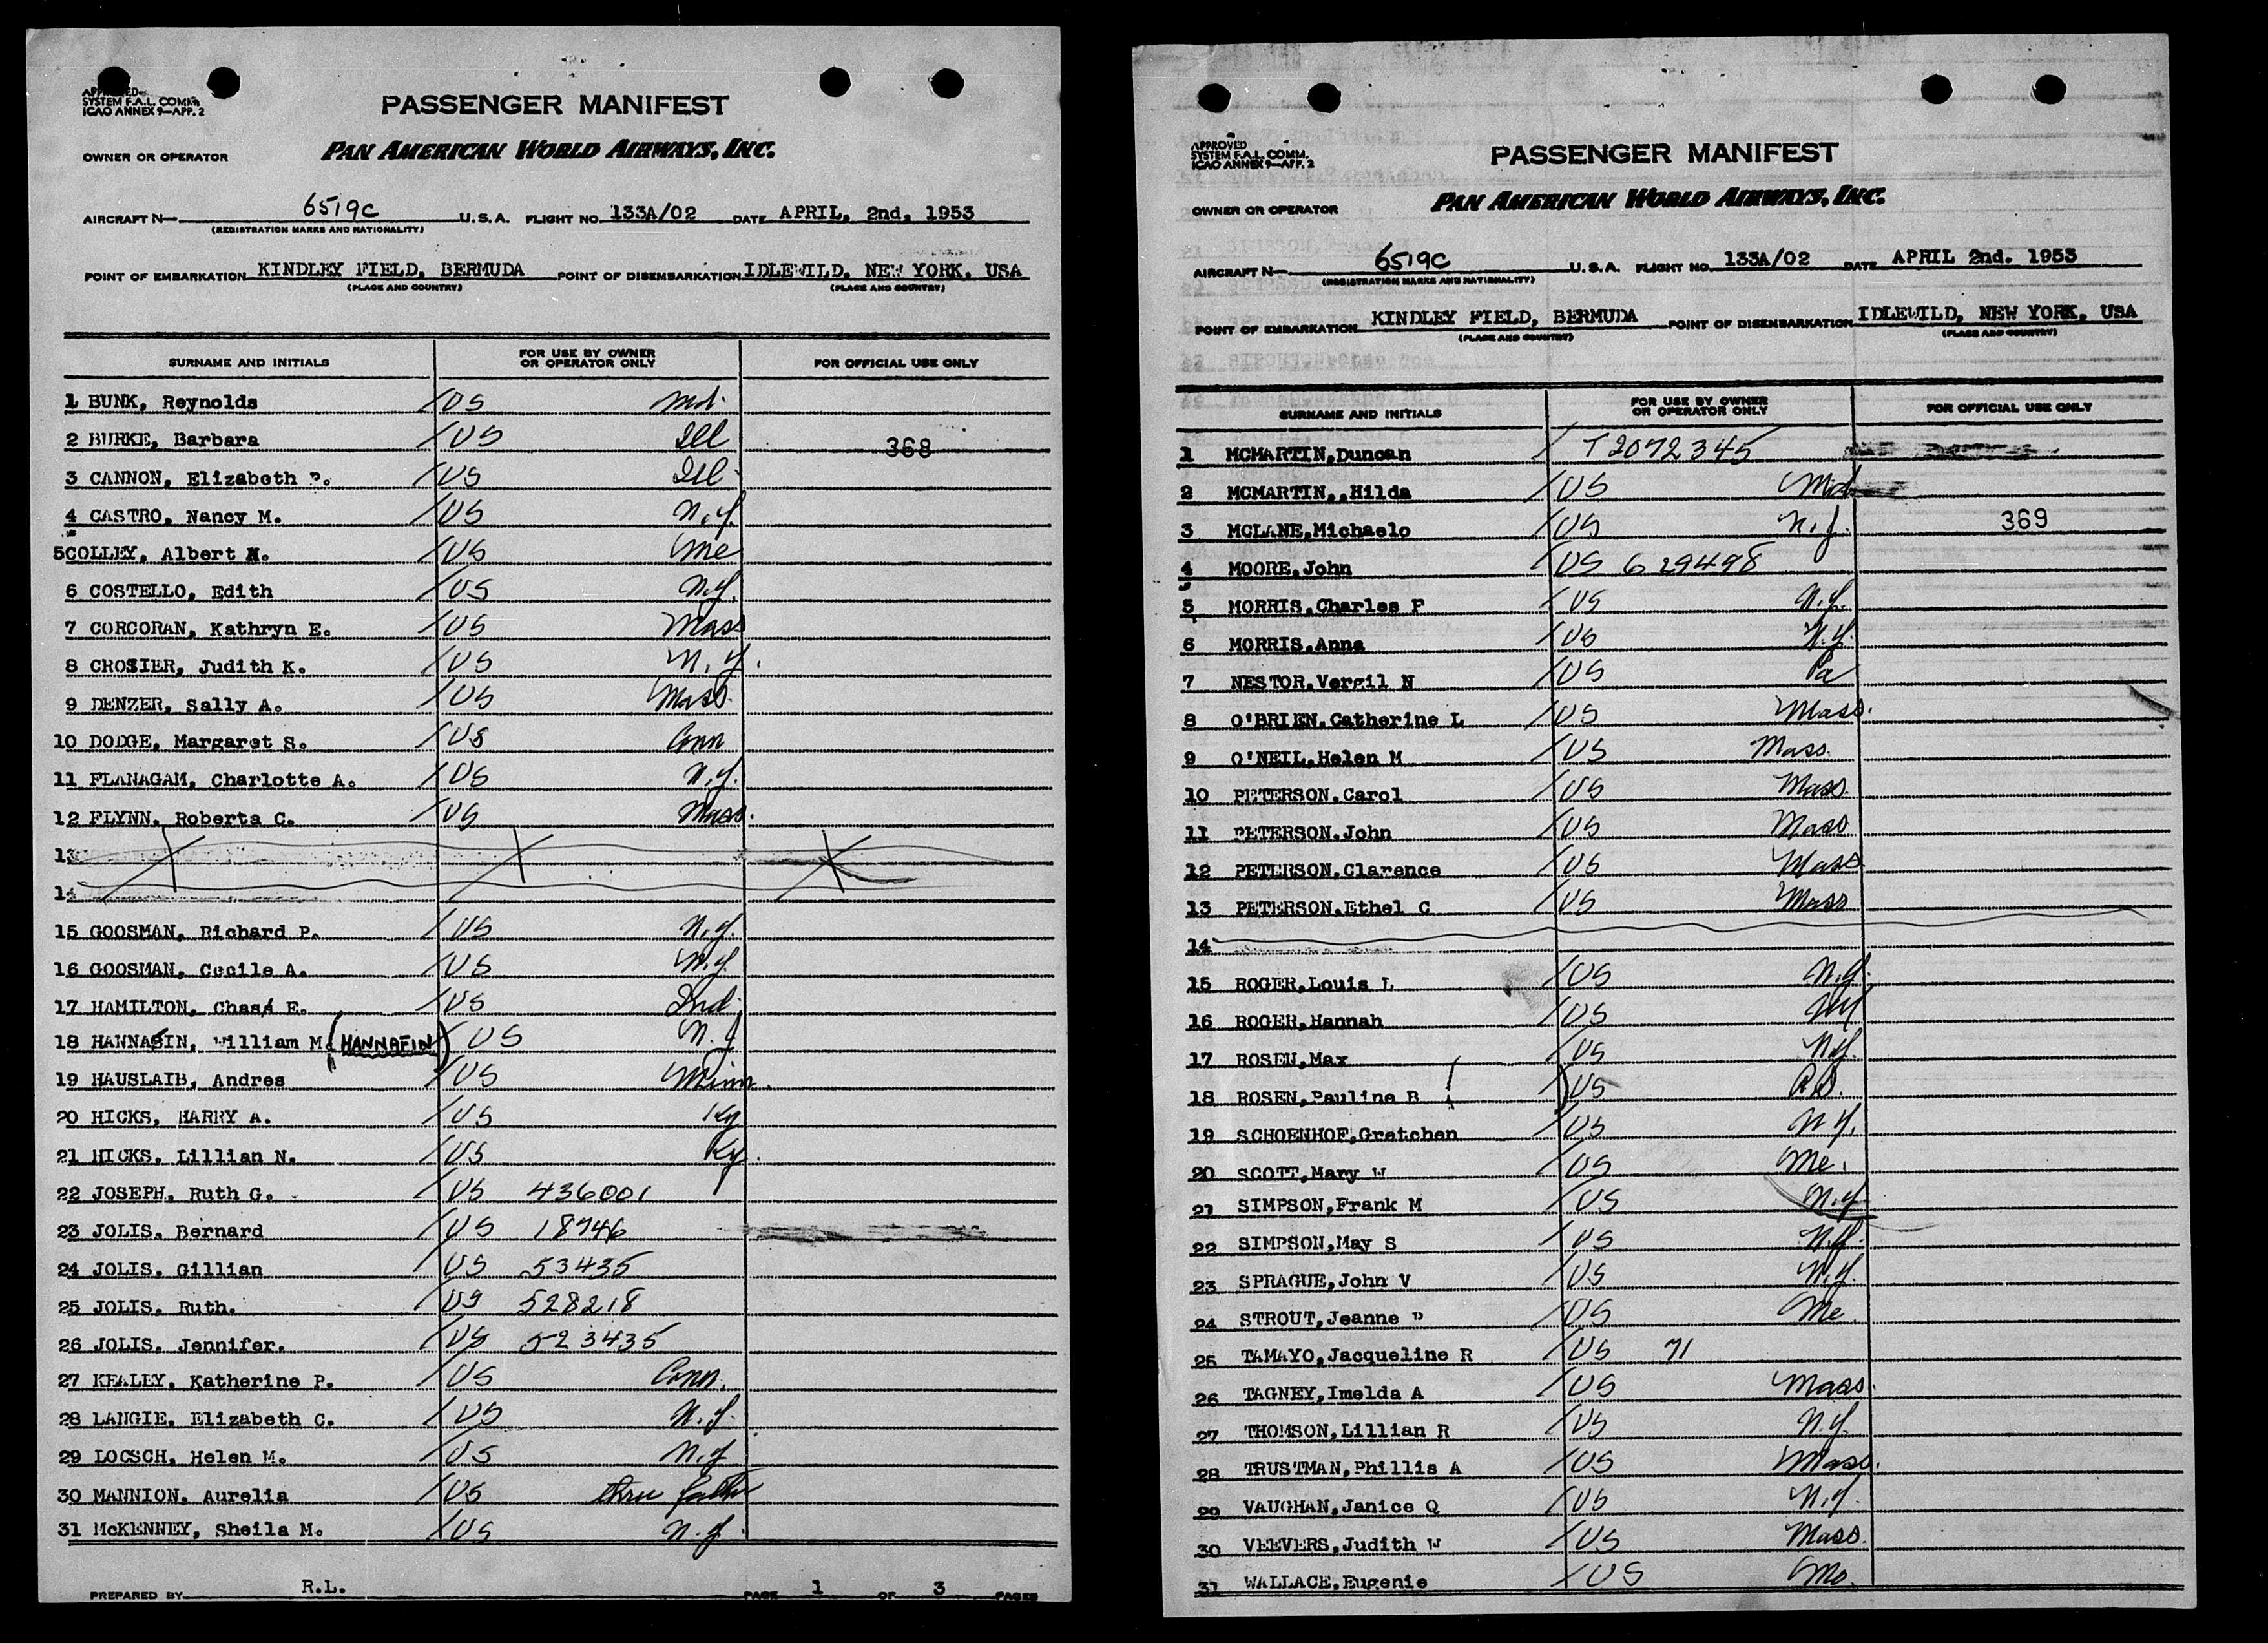 APPROVED
SYSTEM F.A.L. COMM.
ICAO ANNEX 9—APP. 2
PASSENGER MANIFEST
OWNER OR OPERATOR PAN AMERICAN WORLD AIRWAYS, INC.
AIRCRAFT N— 6519C U.S.A. FLIGHT NO. 133A/02 DATE APRIL, 2nd, 1953
(REGISTRATION MARKS AND NATIONALITY)
POINT OF EMBARKATION KINDLEY FIELD, BERMUDA POINT OF DISEMBARKATION IDLEWILD, NEW YORK, USA
(PLACE AND COUNTRY) (PLACE AND COUNTRY)
SURNAME AND INITIALS FOR USE BY OWNER OR OPERATOR ONLY FOR OFFICIAL USE ONLY
1 BUNK, Reynolds / US Md.
2 BURKE, Barbara / US Ill 368
3 CANNON, Elizabeth P. / US Ill
4 CASTRO, Nancy M. / US N.Y.
5 COLLEY, Albert N. / US Me
6 COSTELLO, Edith / US N.Y.
7 CORCORAN, Kathryn E. / US Mass
8 CROSIER, Judith K. / US N.Y.
9 DENZER, Sally A. / US Mass.
10 DODGE, Margaret S. / US Conn
11 FLANAGAM, Charlotte A. / US N.Y.
12 FLYNN, Roberta C. / US Mass.
13
14
15 GOOSMAN, Richard P. / US N.Y.
16 GOOSMAN, Cecile A. / US N.Y.
17 HAMILTON, Chas. E. / US Ind.
18 HANNASIN, William M. (HANNAFIN) US N.J
19 HAUSLAIB, Andres / US Minn.
20 HICKS, HARRY A. / US Ky
21 HICKS, Lillian N. / US Ky.
22 JOSEPH, Ruth G. / US 436001
23 JOLIS, Bernard / US 18746
24 JOLIS, Gillian / US 53435
25 JOLIS, Ruth. / US 528218
26 JOLIS, Jennifer. / US 523435
27 KEALEY, Katherine P. / US Conn.
28 LANGIE, Elizabeth C. / US N.Y.
29 LOCSCH, Helen M. / US N.Y
30 MANNION, Aurelia / US thru father
31 McKENNEY, Sheila M. / US N.Y.
PREPARED BY R.L. PAGE 1 OF 3 PAGES
APPROVED
SYSTEM F.A.L. COMM.
ICAO ANNEX 9—APP. 2
PASSENGER MANIFEST
OWNER OR OPERATOR PAN AMERICAN WORLD AIRWAYS, INC.
AIRCRAFT N— 6519C U.S.A. FLIGHT NO. 133A/02 DATE APRIL 2nd. 1953
(REGISTRATION MARKS AND NATIONALITY)
POINT OF EMBARKATION KINDLEY FIELD, BERMUDA POINT OF DISEMBARKATION IDLEWILD, NEW YORK, USA
(PLACE AND COUNTRY) (PLACE AND COUNTRY)
SURNAME AND INITIALS FOR USE BY OWNER OR OPERATOR ONLY FOR OFFICIAL USE ONLY
1 MCMARTIN, Duncan / T2072345
2 MCMARTIN,.Hilda / US Md
3 MCLANE, Michaelo / US N.J. 369
4 MOORE, John / US 629498
5 MORRIS, Charles P / US N.Y.
6 MORRIS, Anna / US N.Y.
7 NESTOR, Vergil N / US Pa
8 O'BRIEN, Catherine L / US Mass.
9 O'NEIL, Helen M / US Mass.
10 PETERSON, Carol / US Mass.
11 PETERSON, John / US Mass
12 PETERSON, Clarence / US Mass
13 PETERSON, Ethel C / US Mass
14
15 ROGER, Louis L / US N.Y.
16 ROGER, Hannah / US NY
17 ROSEN, Max / US N.Y.
18 ROSEN, Pauline B ( ) US
19 SCHOENHOF, Gretchen / US N.Y.
20 SCOTT, Mary W / US Me.
21 SIMPSON, Frank M / US N.Y
22 SIMPSON, May S / US N.Y.
23 SPRAGUE, John V / US N.Y.
24 STROUT, Jeanne / US Me.
25 TAMAYO, Jacqueline R / US 71
26 TAGNEY, Imelda A / US Mass.
27 THOMSON, Lillian R / US N.Y.
28 TRUSTMAN, Phillis A / US Mass.
29 VAUGHAN, Janice Q / US N.Y.
30 VEEVERS, Judith W / US Mass.
31 WALLACE, Eugenie / US Mo.